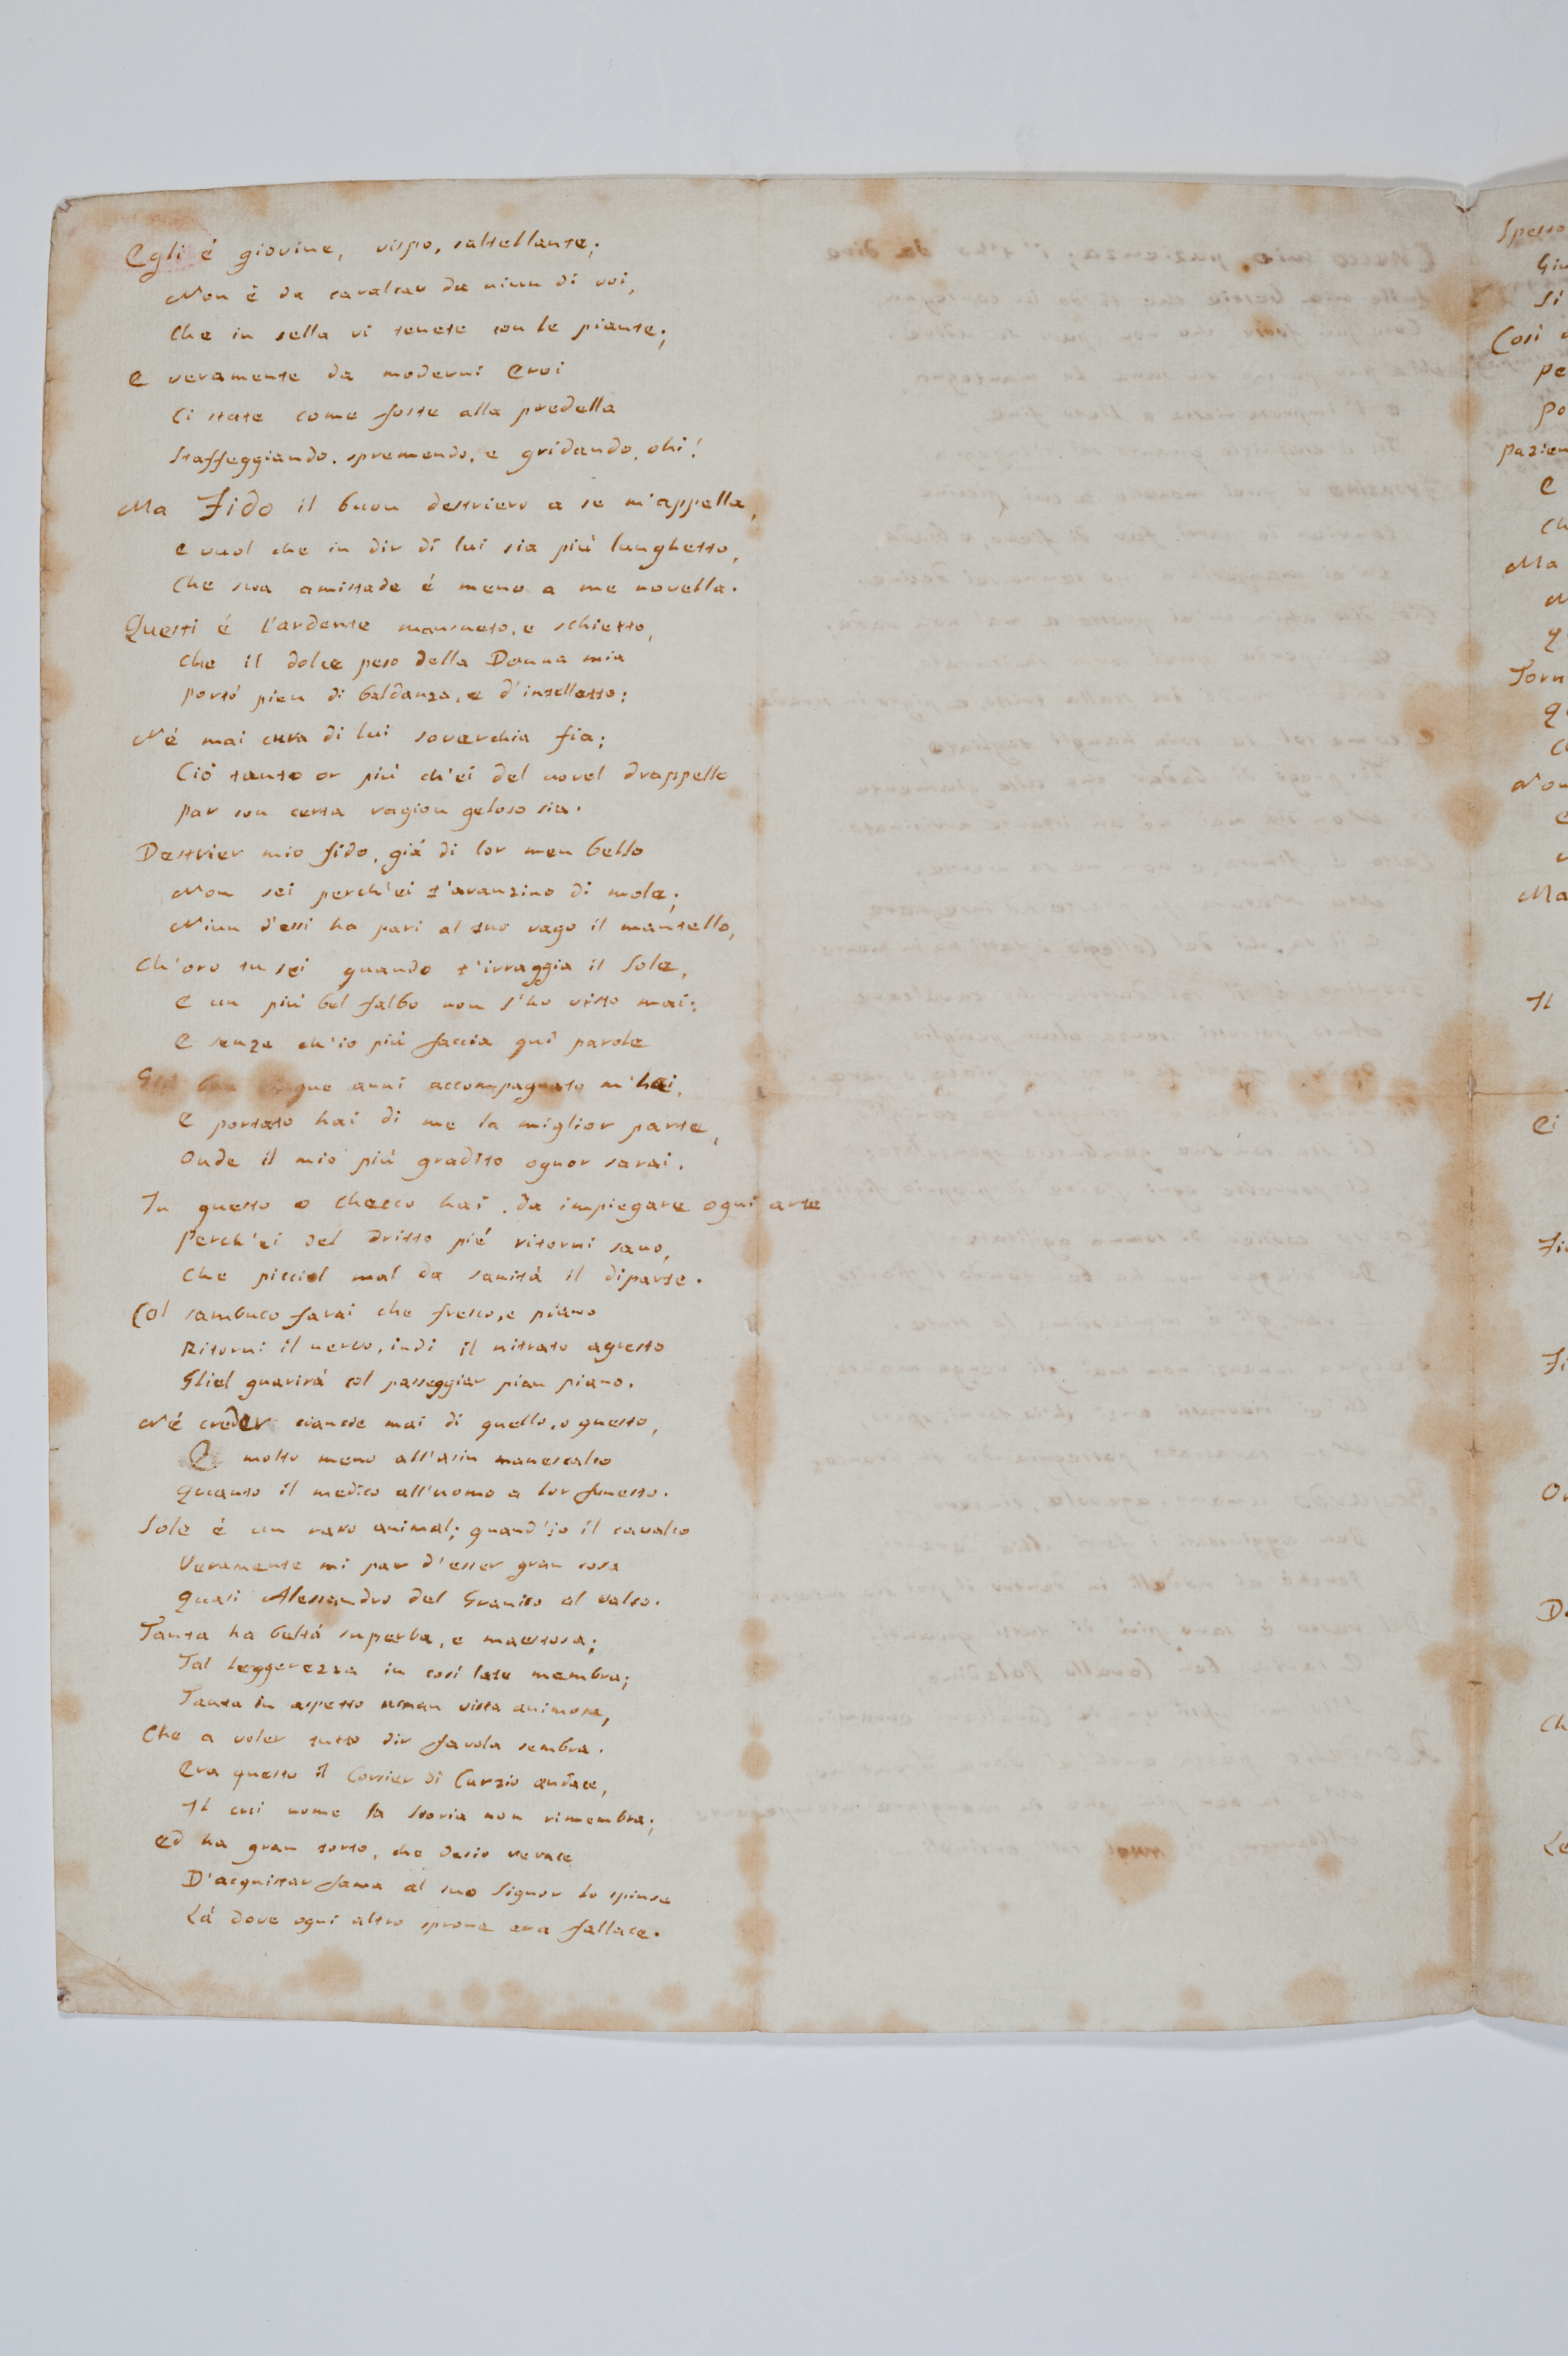 Egli é giovine, vispo, saltellante;
Non è da cavalcar da niun di voi,
Che in sella vi tenete con le piante;
E veramente da moderni Eroi
Ci state come foste alla predella
Staffeggiando, spremendo, e gridando, ohi!
Ma Fido il buon destriero a se m'appella,
E vuol che in dir di lui sia più lunghetto,
Che sua amistade é meno a me novella.
Questi é l'ardente mansueto, e schietto,
Che il dolce peso della Donna mia
Portó pien di baldanza, e d'intelletto;
Né mai cura di lui soverchia fia;
Ció tanto or più ch'ei del novel drappello
Par con certa ragion geloso sia.
Destrier mio fido, giá di lor men bello
Non sei perch'ei t'avanzino di mole;
Niun d'essi ha pari al tuo vago il mantello,
Ch'oro tu sei quando t'irraggia il Sole,
E un più bel falbo non s'ho visto mai;
E senza ch'io più faccia quì parole
anni accompagnato m'hai,
E portato hai di me la miglior parte,
Onde il mio più gradito ognor sarai.
In questo o Checco hai da impiegare ogni arte
Perch'ei del dritto pié ritorni sano,
Che picciol mal da sanitá il diparte.
Col sambuco farai che fresco, e piano
Ritorni il nervo, indi il nitrato agresto
Gliel guarirá col passeggiar pian piano.
Né creder ciancie mai di quello, o questo,
E molto meno all'asin manescalco
Quanto il medico all'uomo a lor funesto.
Sole é un raro animal; quand'io il cavalco
Veramente mi par d'esser gran cosa
Quasi Alessandro del Granico al valco.
Tanta ha beltá superba, e maestosa;
Tal leggerezza in così late membra;
Tanta in aspetto uman vista animosa,
Che a voler tutto dir favola sembra.
Era questo il Corsier di Curzio audace,
Il cui nome la storia non rimembra;
Ed ha gran torto, che desio verace
D'acquistar fama al suo Signor lo spinse
Lá dove ogni altro sprone era fallace.
Spesso
Si
Così
Pe
Po
Pazien
E
Ch
Ma
Torn
Non
Ma
Il
Ei
Ch